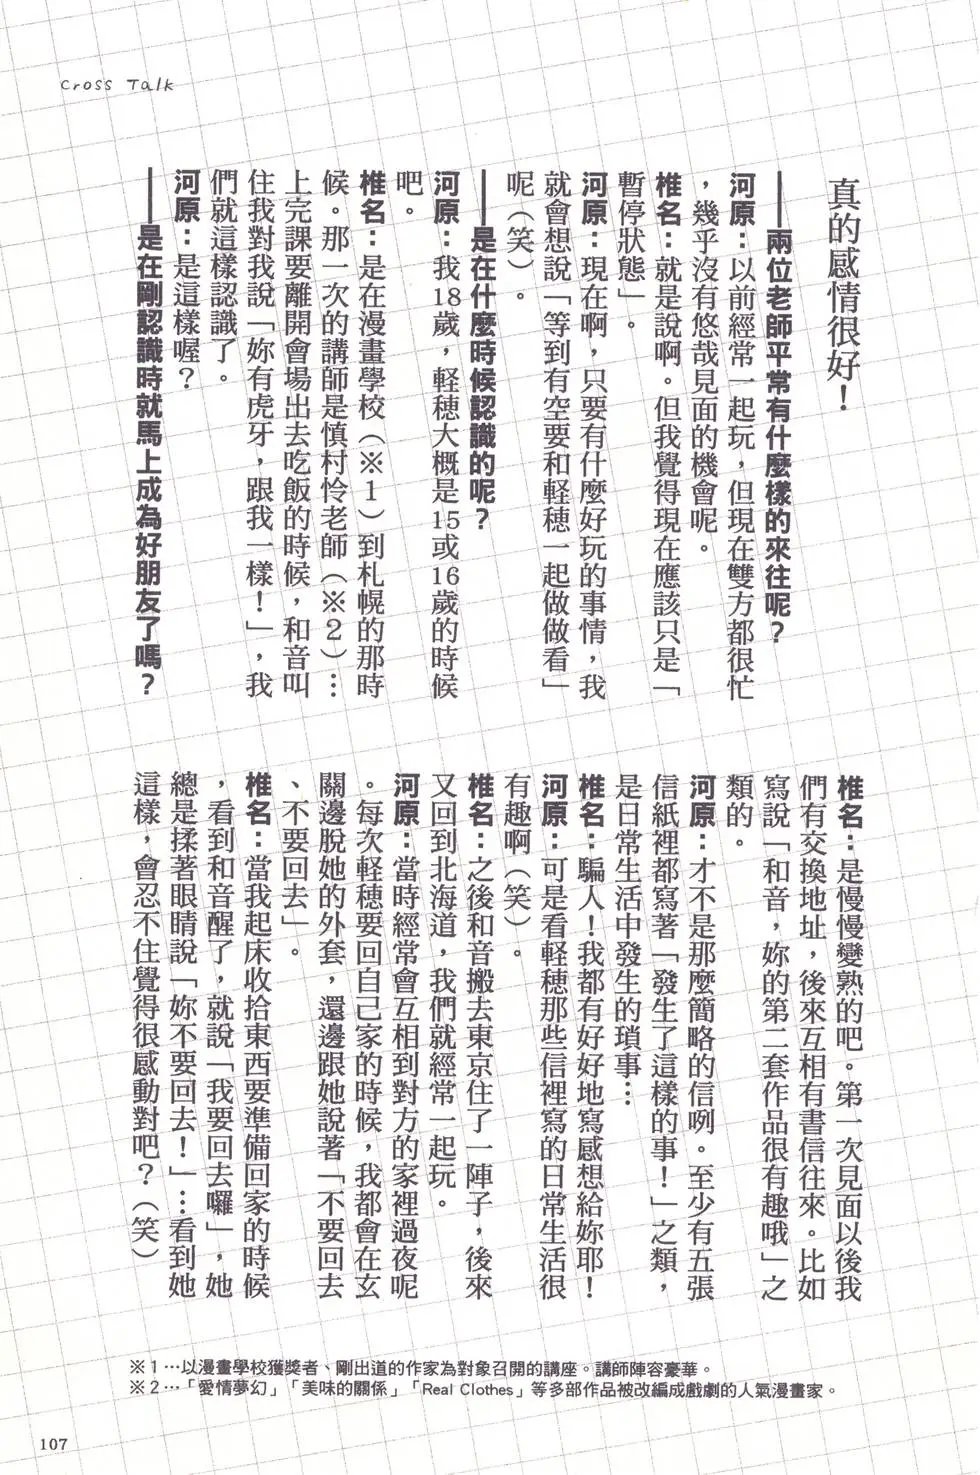 Cross Talk
真的感情很好！
——兩位老師平常有什麼樣的來往呢？
河原：以前經常一起玩，但現在雙方都很忙
，幾乎沒有悠哉見面的機會呢。
椎名：就是說啊。但我覺得現在應該只是「
暫停狀態」。
河原：現在啊，只要有什麼好玩的事情，我
就會想說「等到有空要和軽穂一起做做看」
呢（笑）。
——是在什麼時候認識的呢？
河原：我18歲，軽穂大概是15或16歲的時候
吧。
椎名：是在漫畫學校（※1）到札幌的那時
候。那一次的講師是慎村怜老師（※2）…
上完課要離開會場出去吃飯的時候，和音叫
住我對我說「妳有虎牙，跟我一樣！」，我
們就這樣認識了。
河原：是這樣喔？
——是在剛認識時就馬上成為好朋友了嗎？
椎名：是慢慢變熟的吧。第一次見面以後我
們有交換地址，後來互相有書信往來。比如
寫說「和音，妳的第二套作品很有趣哦」之
類的。
河原：才不是那麼簡略的信咧。至少有五張
信紙裡都寫著「發生了這樣的事！」之類，
是日常生活中發生的瑣事…
椎名：騙人！我都有好好地寫感想給妳耶！
河原：可是看軽穂那些信裡寫的日常生活很
有趣啊（笑）。
椎名：之後和音搬去東京住了一陣子，後來
又回到北海道，我們就經常一起玩。
河原：當時經常會互相到對方的家裡過夜呢
。每次軽穂要回自己家的時候，我都會在玄
關邊脫她的外套，還邊跟她說著「不要回去
、不要回去」。
椎名：當我起床收拾東西要準備回家的時候
，看到和音醒了，就說「我要回去囉」，她
總是揉著眼睛說「妳不要回去！」…看到她
這樣，會忍不住覺得很感動對吧？（笑）
※1…以漫畫學校獲獎者、剛出道的作家為對象召開的講座。講師陣容豪華。
※2…「愛情夢幻」「美味的關係」「Real Clothes」等多部作品被改編成戲劇的人氣漫畫家。
107